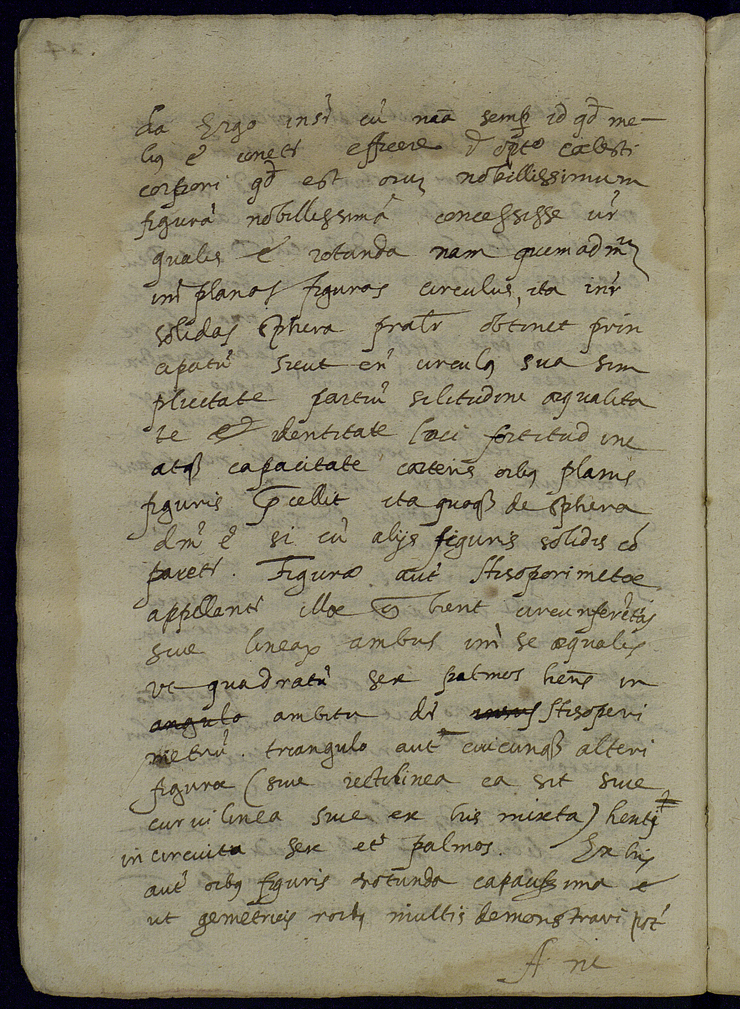 da Ergo insr̃ cũ naã semp id qd̃ me-
liꝯ ẽ conetr̃ efficere optõ cælesti
corpori qd̃ est oiũ nobillissimum
figurã nobillissimã concessisse ur̃
qualis ẽ rotunda nam quemadm̃
int̃ planas figuras circulus, ita intr̃
solidas sphera obtinet prin
capatũ sicut eñ circulꝯ sua sim
plicitate partiũ silitudine æqualita
te et identitate loci fortitudine
atqꝫ capacitate cæteris oibꝯ planis
figuris p̃cellit ita quoqꝫ de sphera
dm̃ ẽ si cũ alijs figuris solidis cõ
paretr̃. Figuræ aut̃ Hisoperimetræ
appellantr̃ illæ q̃ hent circunferẽtias
siue linear̃ ambitus int̃ se æquales
ut quadratũ sex palmos heñs in
angulo ambitu dr̃ Hisoperi
metrũ. triangulo aut̃ cuicunqꝫ alteri
figuræ (siue rectilinea ea sit siue
curuilinea siue ex his mixta) henti
in circuitu sex et̃ palmos. Ex his
aut̃ oibꝯ figuris rotunda capacissima ẽ
ut gemetricis roibꝯ multis demonstrari pot̃
A ni